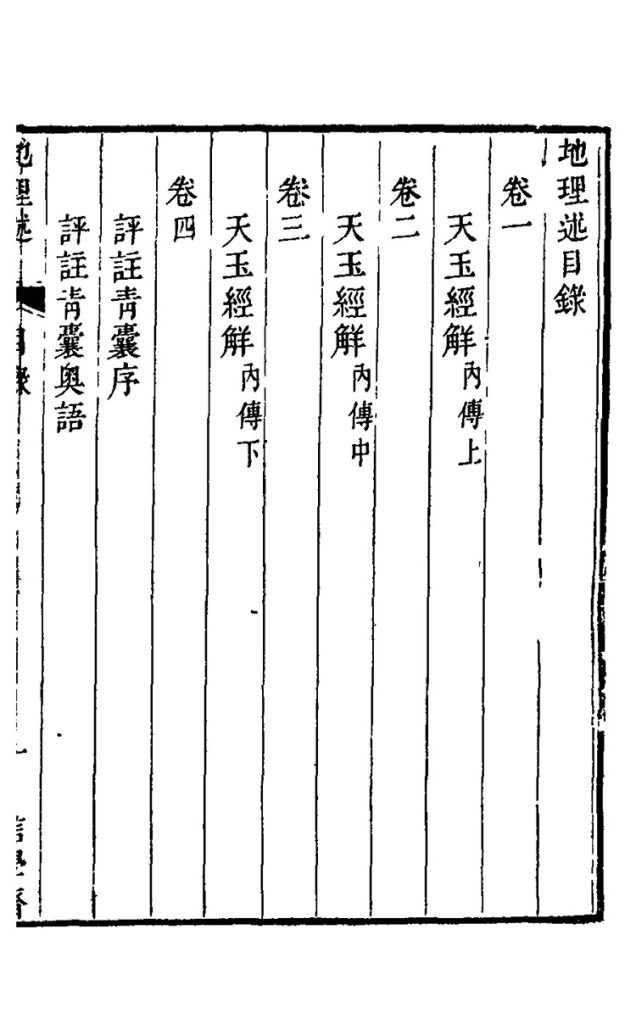 地理述目錄
卷一
天玉經解內傳上
卷二
天玉經解內傳中
卷三
天玉經解內傳下
卷四
評註青囊序
評註青囊奧語
地理述
目錄